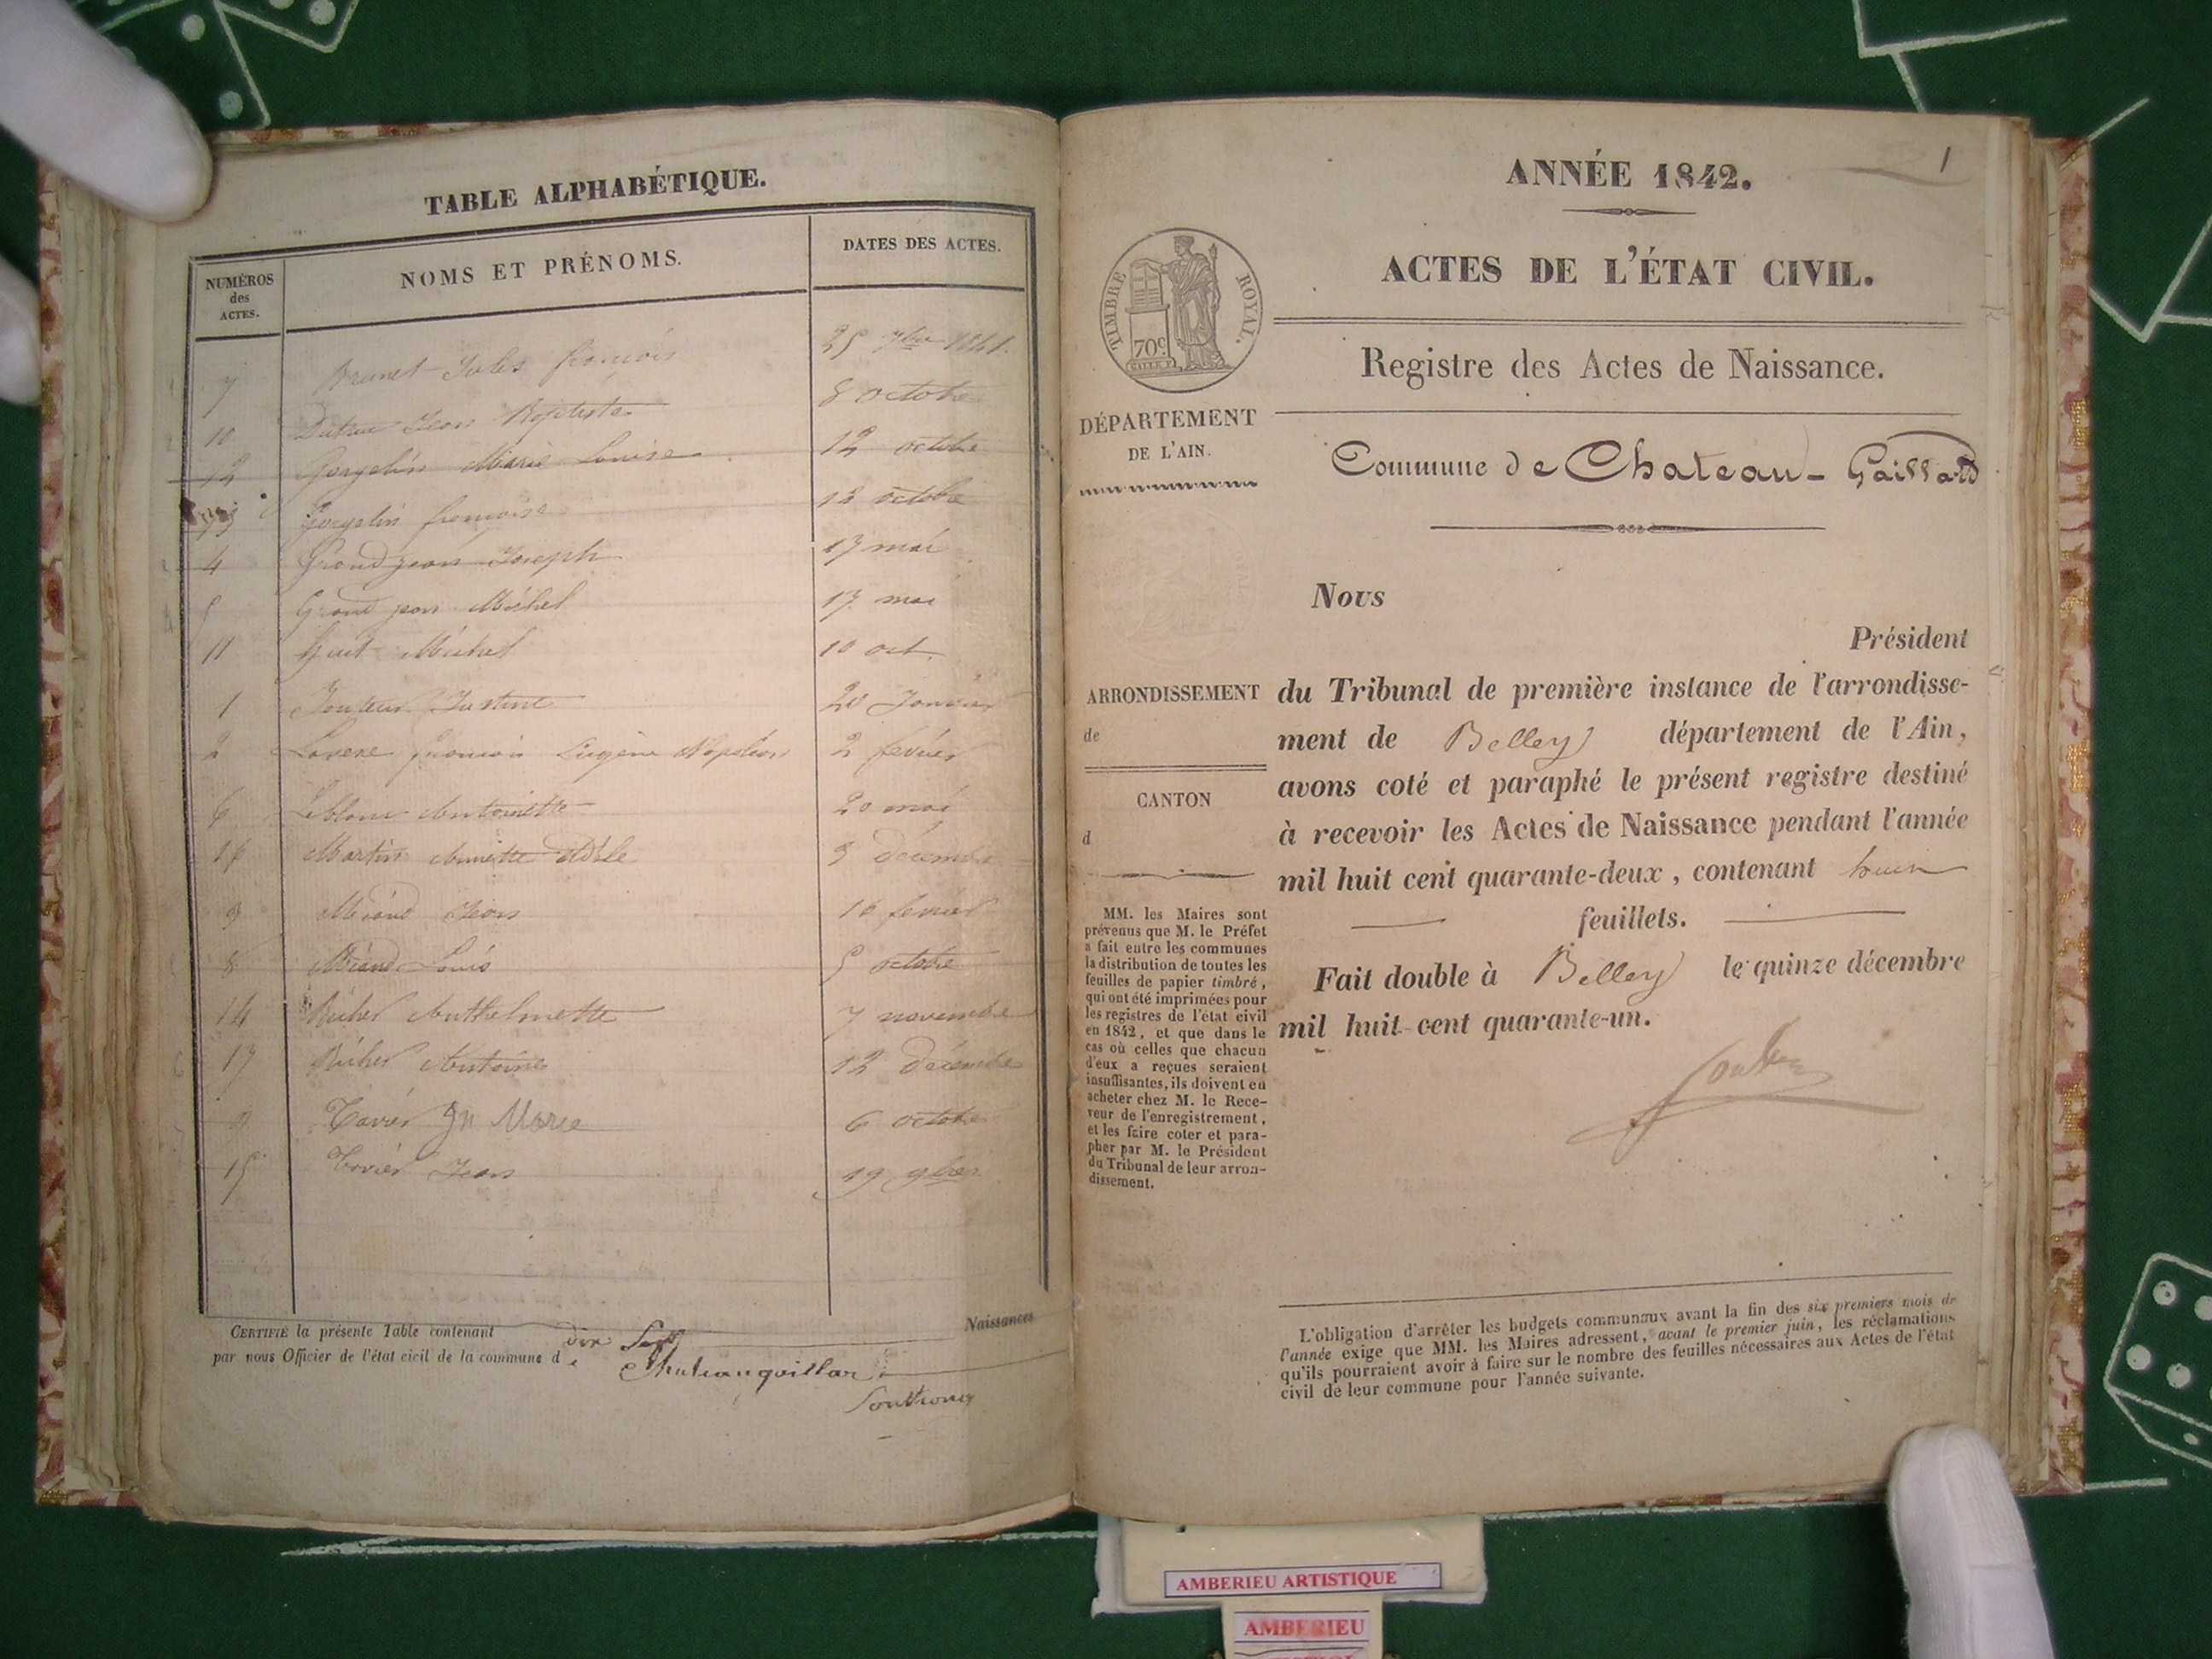 TABLE ALPHABÉTIQUE.
NUMÉROS
des
ACTES.
NOMS ET PRÉNOMS.
DATES DES ACTES.
7 Brunet Jules françois 25 7bre 1841.
10 Jean Baptiste 8 octobre
12 Gorgelin Marie Louise 12 octobre
13 Gorgelin françoise 13 octobre
4 Grandjean Joseph 17 mai
5 Grand jean Michel 17 mai
11 Michel 10 oct.
1 Justine 20 Janvier
2 françois Eugène Napoléon 2 fevrier
6 Leblanc Antoinette 20 mai
16 Martin Annette Adèle 3 décembre
3 Miand Jean 16 fevrier
8 Miand Louis 5 octobre
14 Richer Anthelmette 7 novembre
17 Richer Antoine 12 décembre
9 Tavier Jn Marie 6 octobre
15 Tavier Jean 19 9bre
CERTIFIÉ la présente Table contenant dix Sept Naissances
par nous Officier de l'état civil de la commune de Chateaugaillard
1
ANNÉE 1842.
ACTES DE L'ÉTAT CIVIL.
TIMBRE ROYAL.
70c
Registre des Actes de Naissance.
DÉPARTEMENT
DE L'AIN.
Commune de Chateau-Gaillard
Nous
Président
ARRONDISSEMENT
de
CANTON
d
du Tribunal de première instance de l'arrondisse-
ment de Belley département de l'Ain,
avons coté et paraphé le présent registre destiné
à recevoir les Actes de Naissance pendant l'année
mil huit cent quarante-deux, contenant huit
feuillets.
Fait double à Belley le quinze décembre
mil huit cent quarante-un.
MM. les Maires sont
prévenus que M. le Préfet
a fait entre les communes
la distribution de toutes les
feuilles de papier timbré,
qui ont été imprimées pour
les registres de l'état civil
en 1842, et que dans le
cas où celles que chacun
d'eux a reçues seraient
insuffisantes, ils doivent en
acheter chez M. le Rece-
veur de l'enregistrement,
et les faire coter et para-
pher par M. le Président
du Tribunal de leur arron-
dissement.
L'obligation d'arrêter les budgets communaux avant la fin des six premiers mois de
l'année exige que MM. les Maires adressent, avant le premier juin, les réclamations
qu'ils pourraient avoir à faire sur le nombre des feuilles nécessaires aux Actes de l'état
civil de leur commune pour l'année suivante.
AMBERIEU ARTISTIQUE
AMBERIEU